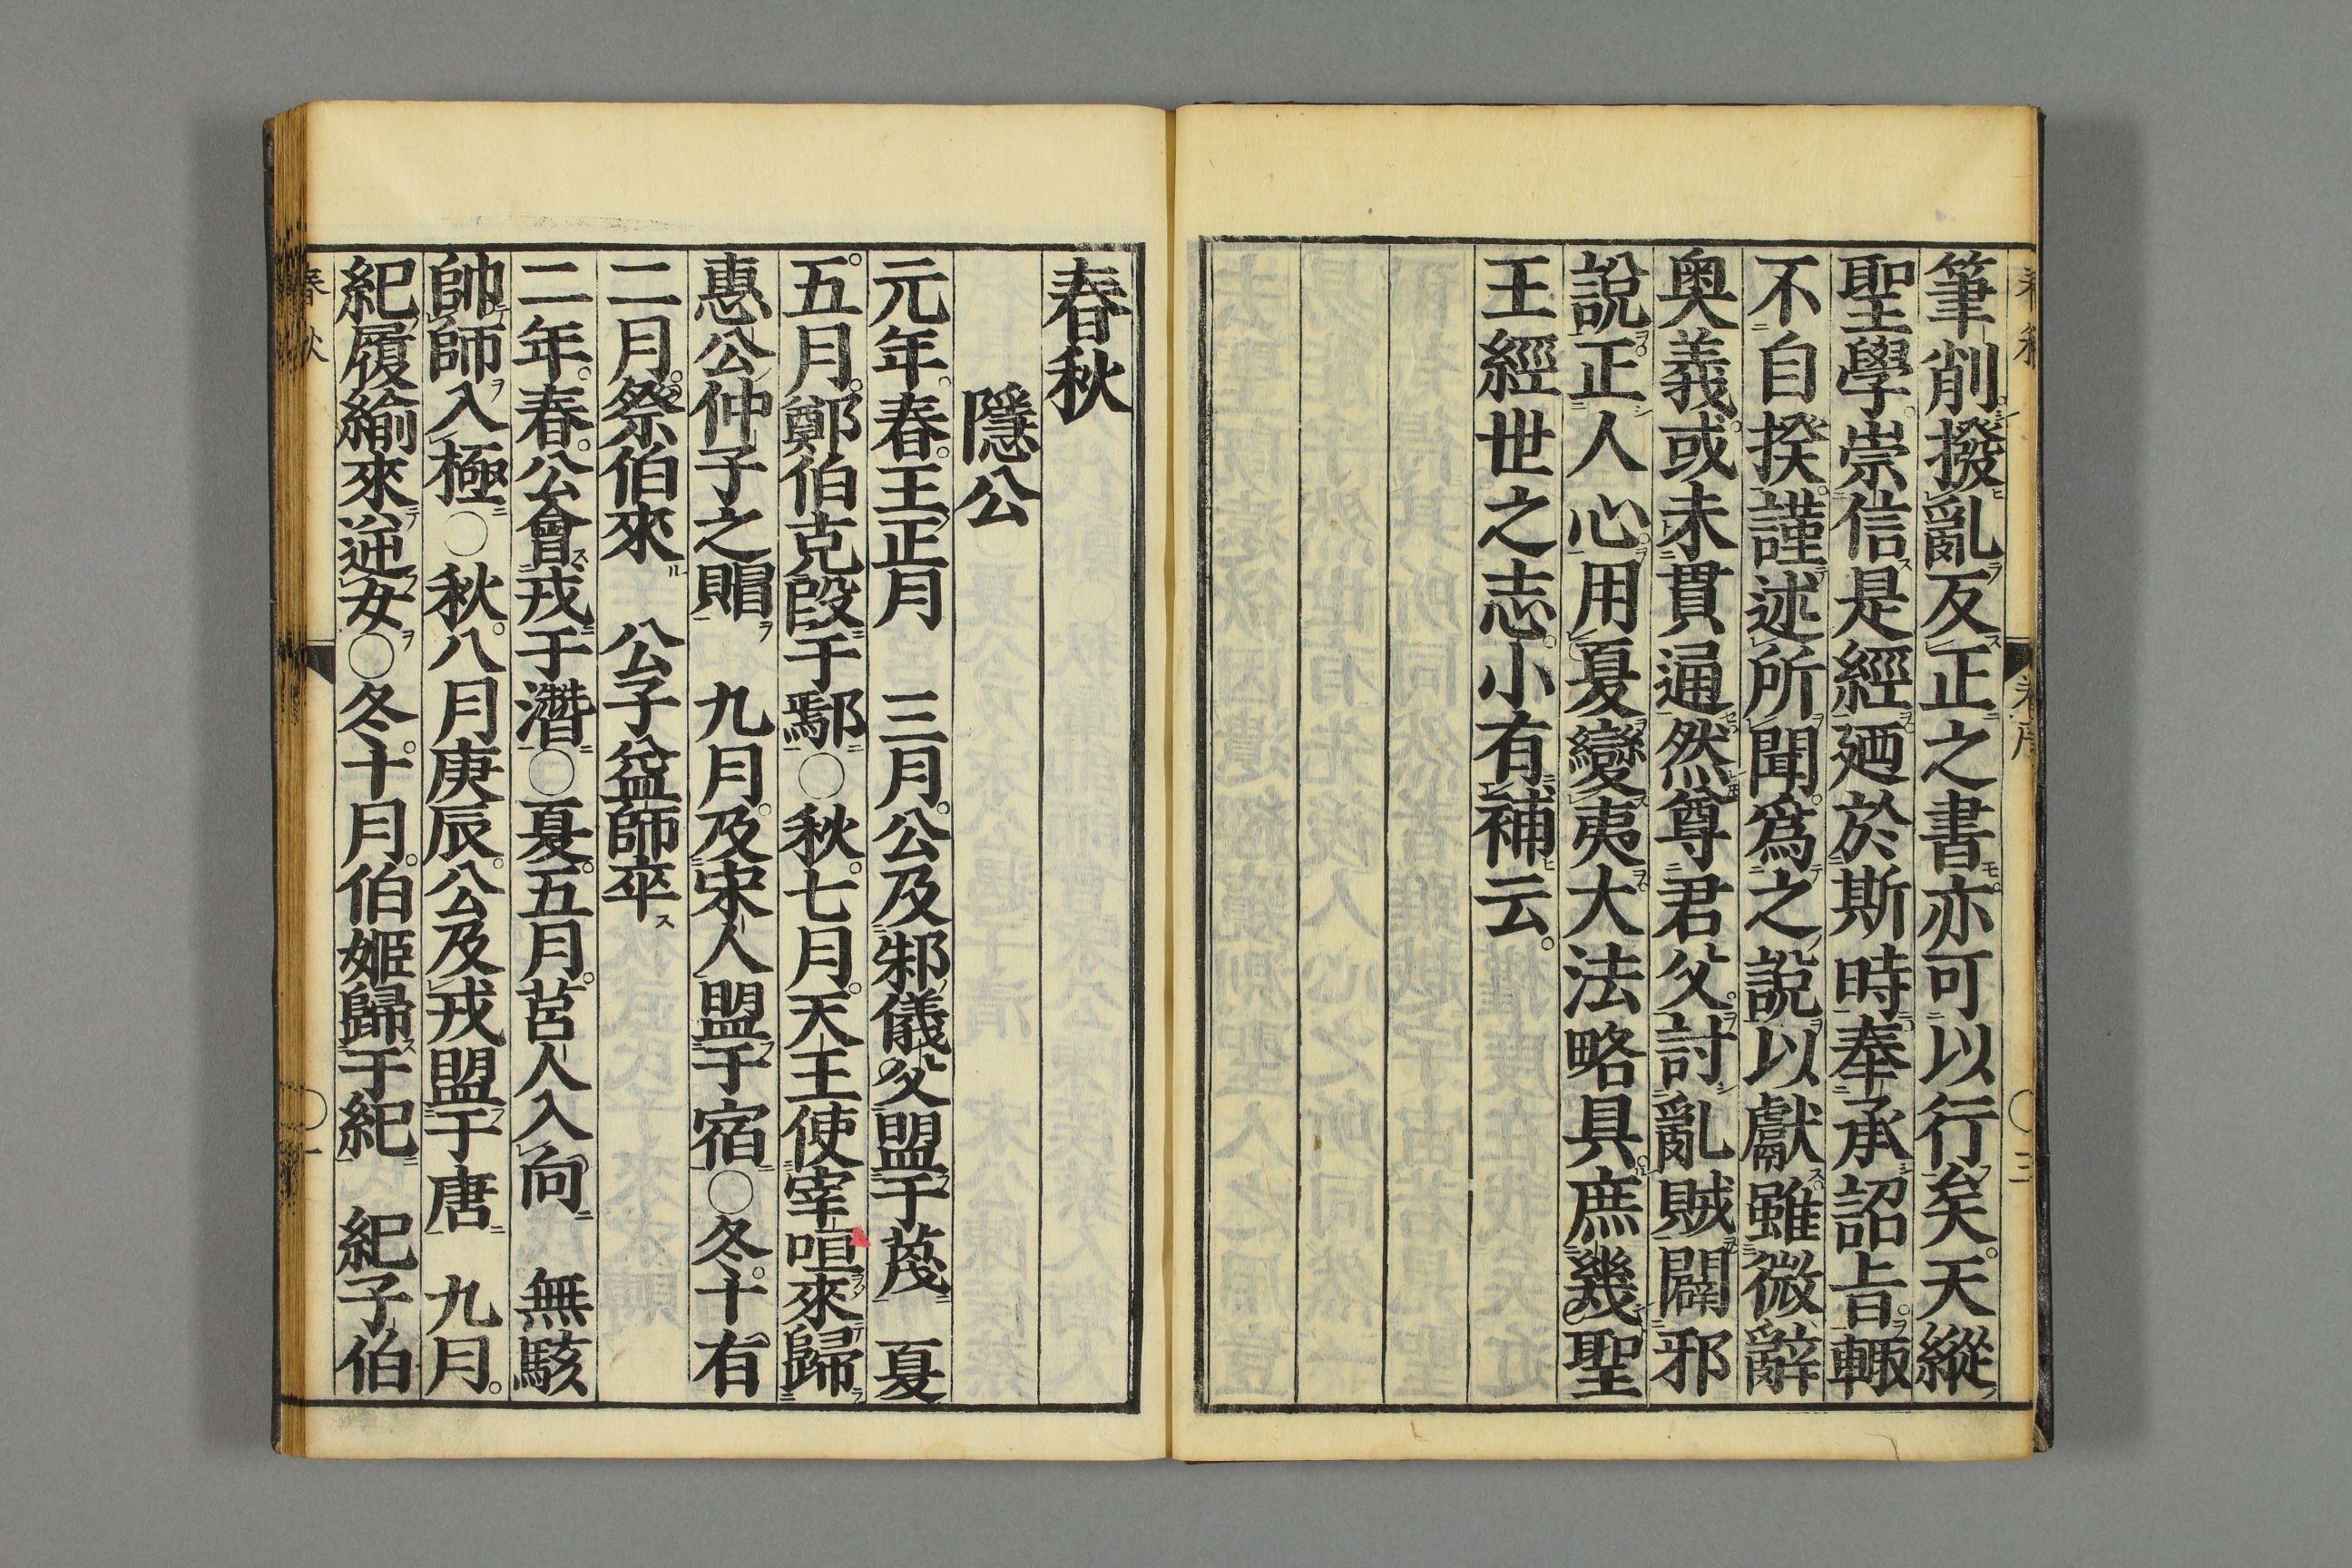 筆削撥亂反正之書亦可以行矣天縱
聖學崇信是經廼於斯時奉承詔旨輒
不自揆謹述所聞爲之說以獻雖微辭
奥義或未貫通然尊君父討亂賊闢邪
說正人心用夏變夷大法略具庶幾聖
王經世之志小有補云
春秋
隱公
元年春王正月　三月公及邾儀父盟于蔑　夏
五月鄭伯克段于鄢〇秋七月天王使宰咺來歸
惠公仲子之賵　九月及宋人盟于宿〇冬十有
二月祭伯來　公子益師卒
二年春公會戎于潛〇夏五月莒人入向　無駭
帥師入極〇秋八月庚辰公及戎盟于唐　九月
紀履緰來逆女〇冬十月伯姬歸于紀　紀子伯
春秋　〇一